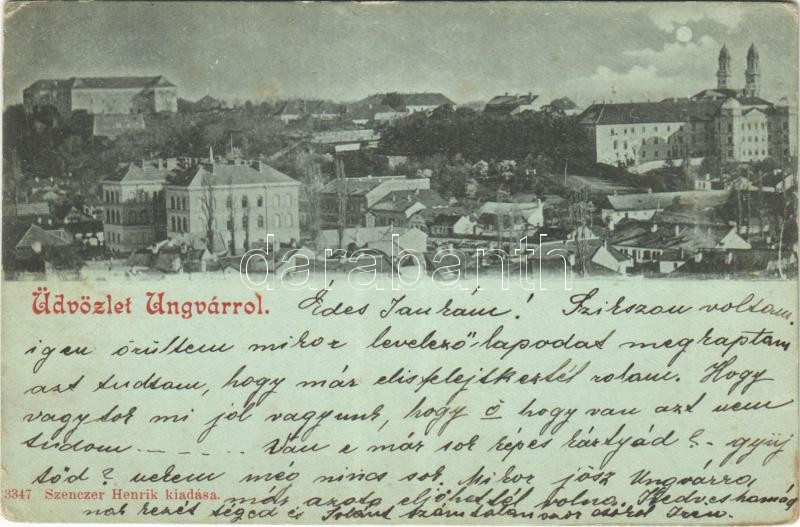 darabanth
Üdvözlet Ungvárról. Édes Jankám! Szikszon voltam.
igen örültem mikor levelező-lapodat megkaptam
azt tudtam, hogy már elisfelejtkeztél rolam. Hogy
vagytok mi jól vagyunk, hogy ő hogy van azt nem
tudom. - - - - - Van e már sok képes kártyád? - gyüj
töd? nekem még nincs sok. Mikor jösz Ungvárra,
3347 Szenczer Henrik kiadása. már azota eljöhettél volna. Kedves mamád
nak kezét téged és számtalanszor csókol Iren.